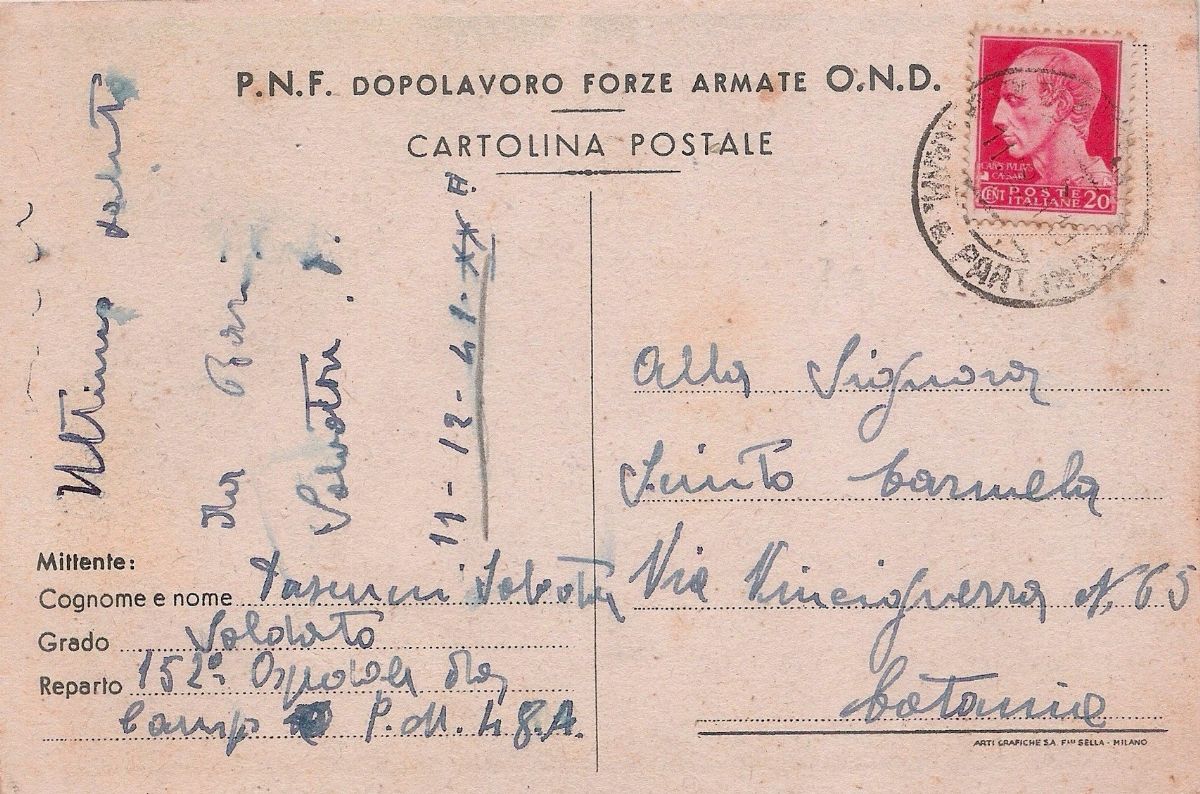 P.N.F. DOPOLAVORO FORZE ARMATE O.N.D.
CARTOLINA POSTALE
CENT POSTE ITALIANE 20
Ultimo saluto
da Bari
Salvatore
11-12-41-XX
Alla Signora
Carmela
Via Vinciguerra N. 65
Catania
Mittente:
Cognome e nome
Grado Soldato
Reparto 152° Ospedale da
Campo P.M. 48.A.
ARTI GRAFICHE S.A. Flli SELLA - MILANO